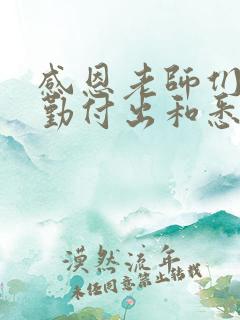 感恩老师们
勤付出和悉
漠然流年
未经同意禁止转载